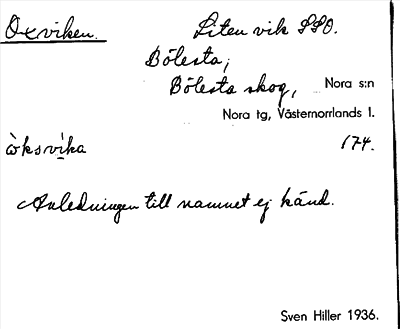 Oxviken. Liten vik SSO.
Bölesta,
Bölesta skog, Nora s:n
Nora tg, Västernorrlands l.
òksvi̍ka 174.
Anledningen till namnet ej känd.
Sven Hiller 1936.